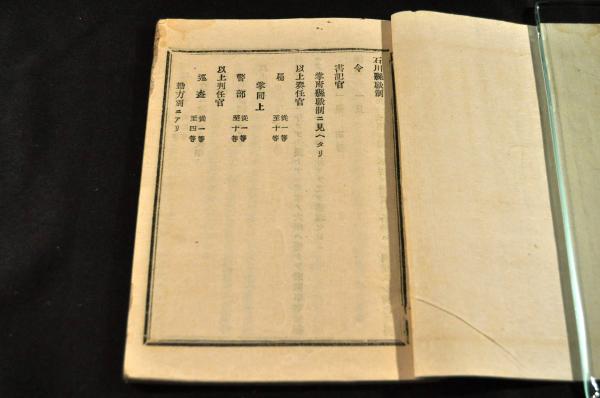 石川縣職制
令
書記官
掌府縣職制ニ見ヘタリ
以上奏任官
屬 從一等至十等
掌同上
警部 從一等至十等
以上判任官
巡査 從一等至四等
勤方別ニアリ